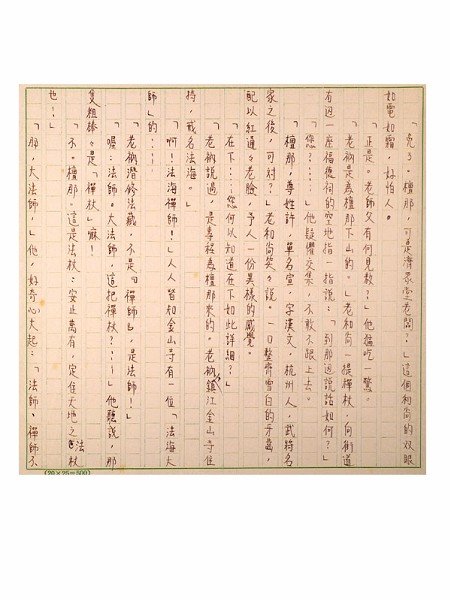 「完了。檀那,可是濟眾堂老闆?」這個和尚的双眼
如電如霜,好怕人。
「正是。老師父有何見教?」他尷吃一驚。
「老衲是為檀那下山的。」老和尚一提禪杖,向街道
右边一座福德祠的空地指一指說:「到那边說話如何?」
「您?……」他疑懼交集,不敢不跟上去。
「檀那,尊姓許,單名宣,字漢文,杭州人,武將名
家之後,可对?」老和尚笑々說。一口整齊雪白的牙齒,
配以紅通々老臉,予人一份異樣的感覺。
「在下……您何以知道在下如此詳細?」
「老衲說過,是專程為檀那來的。老衲鎮江金山寺住
持,戒名法海。」
「啊!法海禪師!」人人皆知金山寺有一位「法海大
師」的……
「老衲潛修法藏,不是『禪師』,是法師!」
「喔:法師。大法師,這把禪杖?……」他聽說,那
隻粗棒々是「禪杖」嘛!
「不。檀那。這是法杖:安正萬有,定住天地之法杖
也!」
「那,大法師,」他,好奇心大起:「法師、禪師不
(20×25=500)